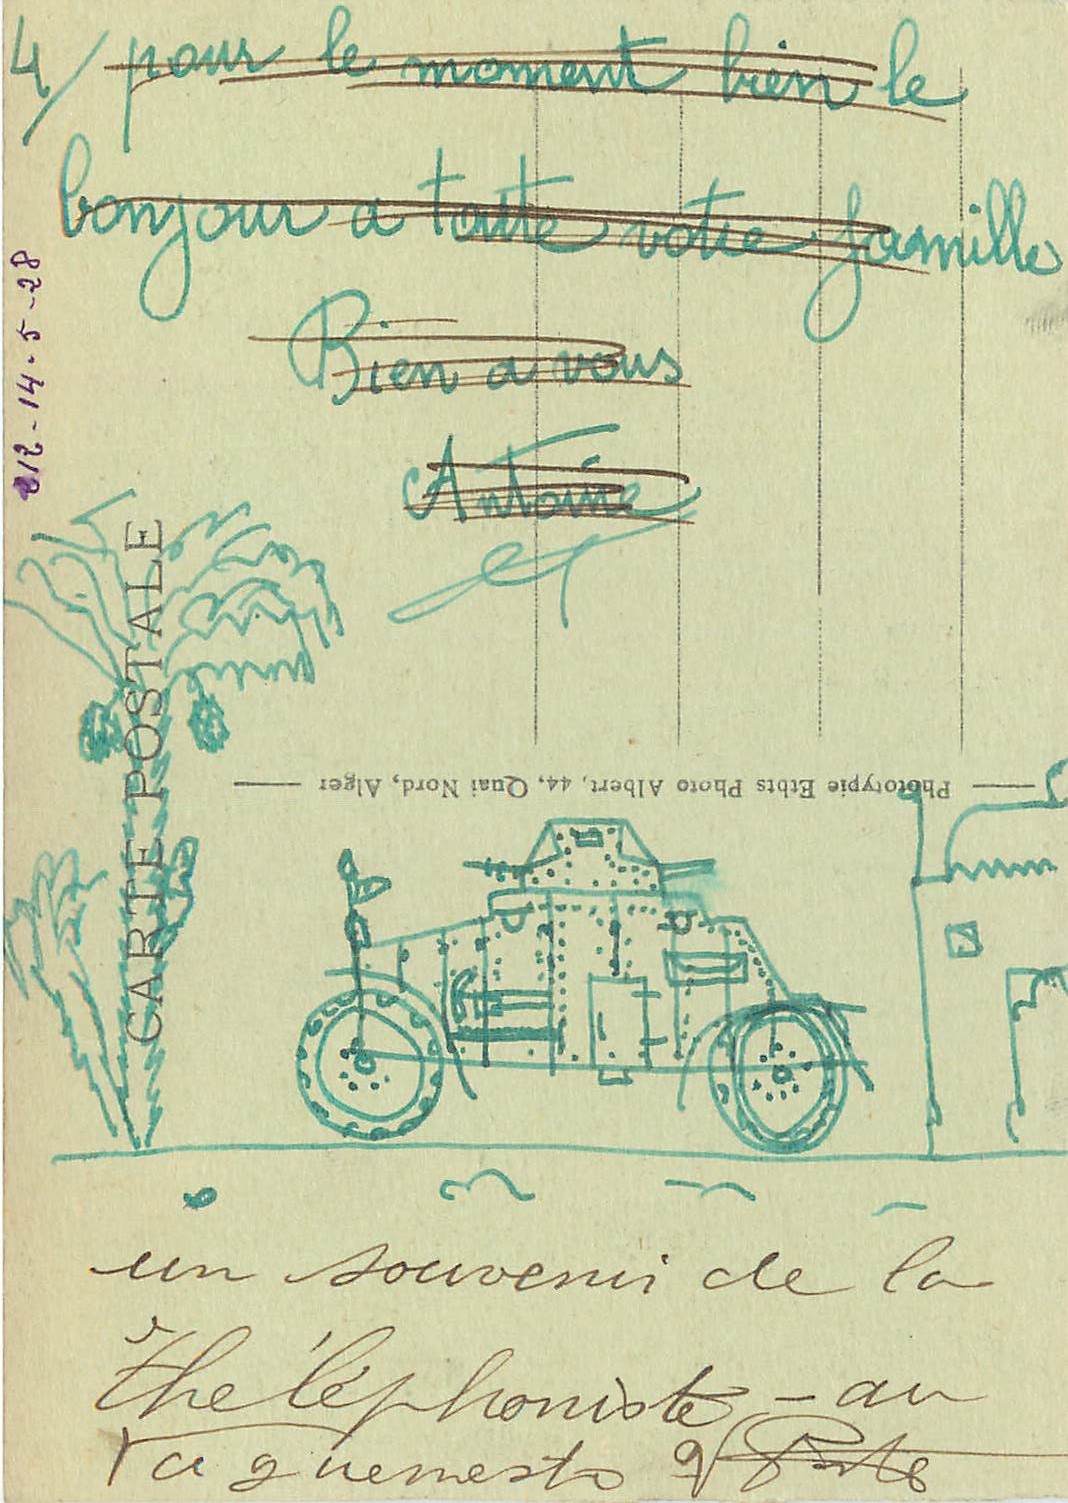 4/ pour le moment bien le
bonjour a toute votre famille
Bien a vous
Antoine
212-14.5-28
CARTE POSTALE
Phototypie Etbts Photo Albert, 44, Quai Nord, Alger
un souvenir de la
théléphoniste - au
Vaguemestre